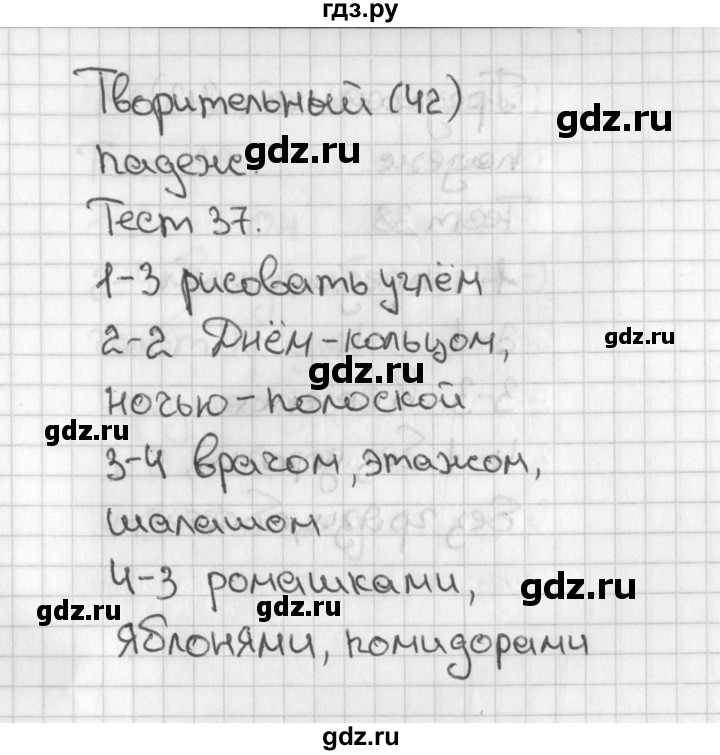 гдз.ру
Творительный (42)
gdz.ru
падеж.
gdz.ru
Тест 37.
1-3 рисовать углём
2-2 Днём-кольцом,
gdz.ru
gdz.ru
ночью-полоской
gdz.ru
3-4 врачом, этажом,
шалашом
4-3 ромашками,
gdz.ru
gdz.ru
gdz.ru
яблонями, помидорами
gdz.ru